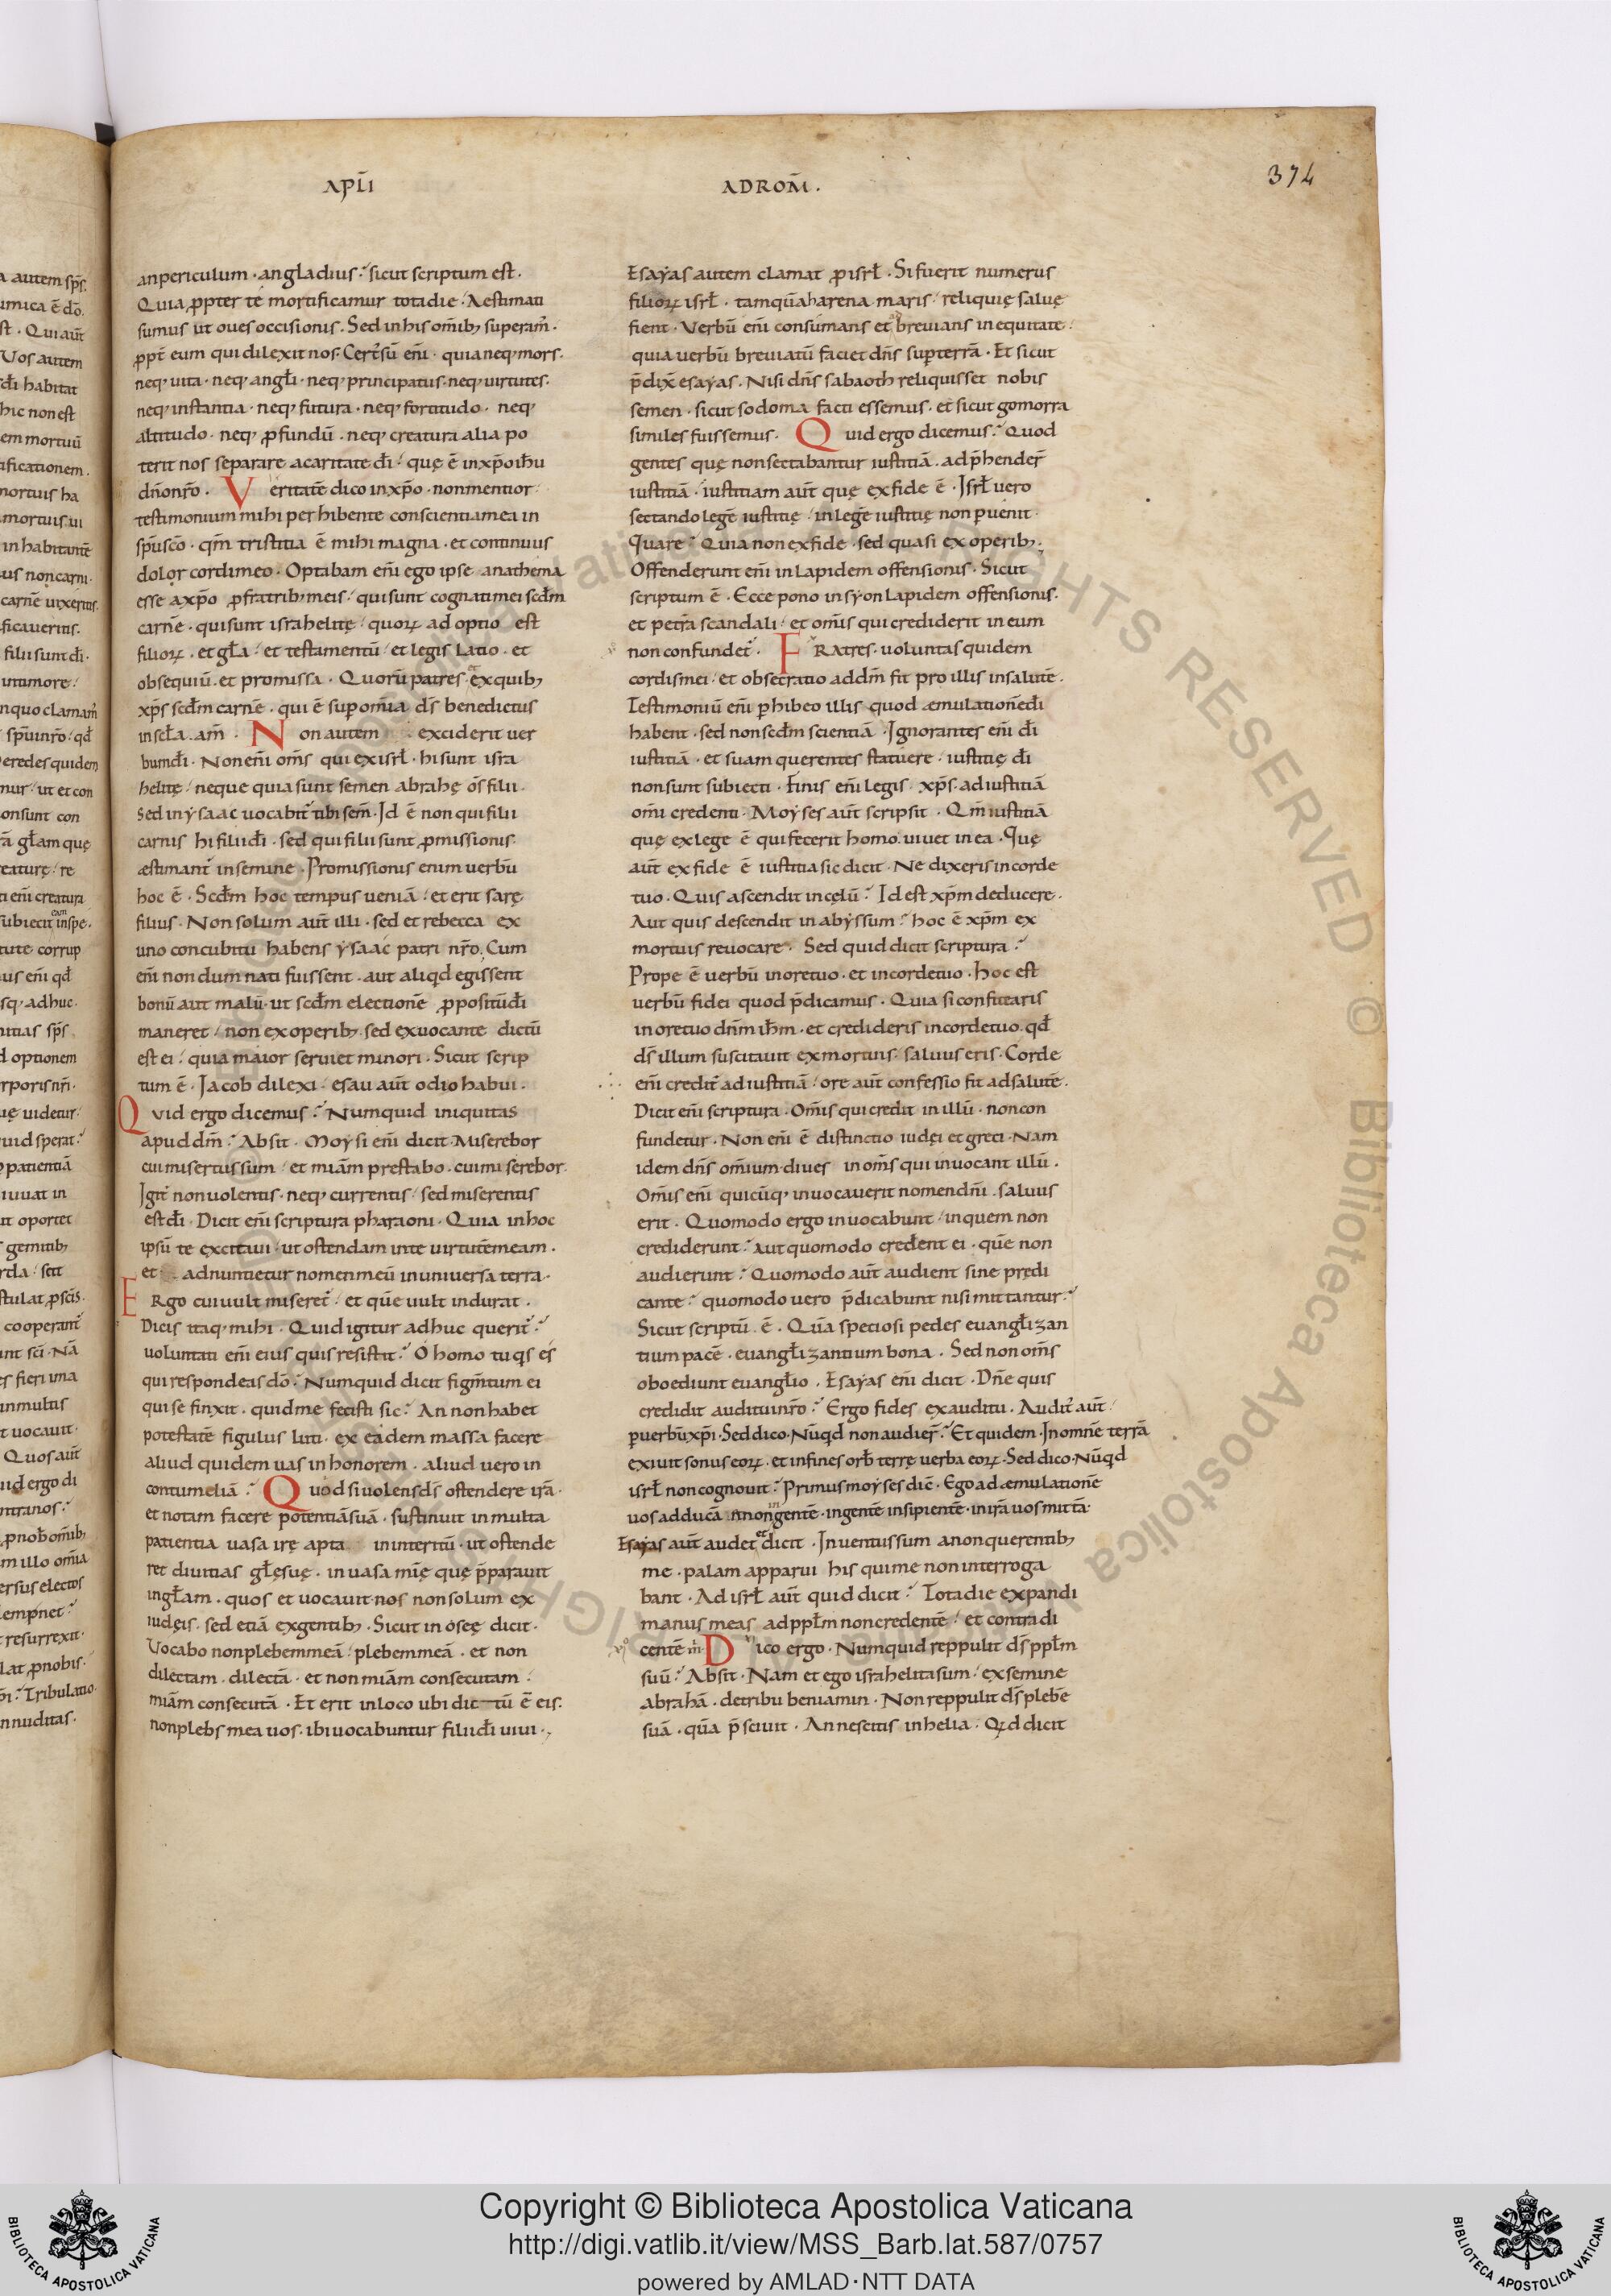 APL̄I
AD ROM̄.
374
an periculum · an gladius? sicut scriptum est.
Quia ꝓpter te mortificamur tota die. Aestimati
sumus ut oues occisionis. Sed in his om̄ib; superam̄.
ꝓpt̄ eum qui dilexit nos. Cert᷒ sū eni̅ · quia neq; mors.
neq; uita · neq; angłi · neq; principatus · neq; uirtutes.
neq; instantia · neq; futura · neq; fortitudo · neq;
altitudo · neq; ꝓfundū · neq; creatura alia po
terit nos separare a caritate dī · quę ē in xp̄o ihū
dn̄o nr̄o. Veritatē dico in xp̄o · non mentior
testimonium mihi perhibente conscientia mea in
sp̄u sc̄o · qm̄ tristitia ē mihi magna · et continuus
dolor cordi meo · Optabam eni̅ ego ipse anathema
esse a xp̄o ꝓ fratrib; meis · qui sunt cognati mei scd̄m
carnē · qui sunt israhelitę · quoꝝ adoptio est
filioꝝ · et gła · et testamentū · et legislatio · et
obsequiū · et promissa · Quorū patres · ex quib;
xp̄s scd̄m carnē · qui ē sup om̄ia d̄s benedictus
in scła · am̄. Non autem exciderit uer
bum dī · Non eni̅ om̄s qui ex isrł · hi sunt isra
helitę · neque quia sunt semen abrahę om̄s filii ·
Sed in ysaac uocabit᷒ tibi sem̄ · Id ē non qui filii
carnis hi filii dī · sed qui filii sunt ꝓmissionis
æstimant᷒ in semine · Promissionis enim uerbū
hoc ē · Scd̄m hoc tempus ueniā · et erit sarę
filius · Non solum aut̄ illi · sed et rebecca ex
uno concubitu habens ysaac patri nr̄o. Cum
eni̅ nondum nati fuissent · aut aliqd egissent
bonū aut malū · ut scd̄m electionē ꝓpositū dī
maneret · non ex operib; sed ex uocante dictū
est ei · quia maior seruiet minori · Sicut scrip
tum ē · Iacob dilexi · esau aut̄ odio habui ·
Quid ergo dicemus? Numquid iniquitas
apud dm̄? Absit · Moysi eni̅ dicit · Miserebor
cui misertus sum · et miām prestabo · cui miserebor ·
Igit᷒ non uolentis · neq; currentis · sed miserentis
est dī · Dicit eni̅ scriptura pharaoni · Quia in hoc
ipsū te excitaui · ut ostendam in te uirtutē meam ·
et adnuntietur nomen meū in uniuersa terra ·
Ergo cui uult miseret᷒ · et quē uult indurat ·
Dicis itaq; mihi · Quid igitur adhuc querit᷒?
uoluntati eni̅ eius quis resistit? O homo tu qs es
qui respondeas dō? Numquid dicit figm̄tum ei
qui se finxit · quid me fecisti sic? An non habet
potestatē figulus luti · ex eadem massa facere
aliud quidem uas in honorem · aliud uero in
contumeliā? Quod si uolens d̄s ostendere irā ·
et notam facere potentiā suā · sustinuit in multa
patientia uasa irę apta in interitū · ut ostende
ret diuitias głę suę · in uasa mię quę p̄parauit
in głam · quos et uocauit nos non solum ex
iudęis · sed etiā ex gentib; · Sicut in oseę dicit ·
Vocabo non plebem meā · plebem meā · et non
dilectam · dilectā · et non miām consecutam ·
miām consecutā · Et erit in loco ubi dictū ē eis ·
non plebs mea uos · ibi uocabuntur filii dī uiui ·
Esayas autem clamat ꝓ isrł · Si fuerit numerus
filioꝝ isrł · tamquā harena maris · reliquię saluę
fient · Verbū eni̅ consumans et breuians in equitate ·
quia uerbū breuiatū faciet dn̄s sup terrā · Et sicut
p̄dix̄ esayas · Nisi dn̄s sabaoth reliquisset nobis
semen · sicut sodoma facti essemus · et sicut gomorra
similes fuissemus · Quid ergo dicemus? Quod
gentes quę non sectabantur iustitiā · adp̄hender̄
iustitiā · iustitiam aut̄ quę ex fide ē · Isrł uero
sectando legē iustitię · in legē iustitię non ꝑuenit ·
Quare? Quia non ex fide · sed quasi ex operib; ·
Offenderunt eni̅ in lapidem offensionis · Sicut
scriptum ē · Ecce pono in syon lapidem offensionis ·
et petrā scandali · et om̄is qui crediderit in eum
non confundet᷒ · Fratres · uoluntas quidem
cordis mei · et obsecratio ad dm̄ fit pro illis in salutē ·
Testimoniū eni̅ ꝑhibeo illis quod æmulationē dī
habent · sed non scd̄m scientiā · Ignorantes eni̅ dī
iustitiā · et suam querentes statuere · iustitię dī
non sunt subiecti · Finis eni̅ legis · xp̄s · ad iustitiā
om̄i credenti · Moyses aut̄ scripsit · Qm̄ iustitiā
quę ex lege ē qui fecerit homo uiuet in ea · Quę
aut̄ ex fide ē iustitia sic dicit · Ne dixeris in corde
tuo · Quis ascendit in cęlū? Id est xp̄m deducere ·
Aut quis descendit in abyssum? hoc ē xp̄m ex
mortuis reuocare · Sed quid dicit scriptura?
Prope ē uerbū in ore tuo · et in corde tuo · hoc est
uerbū fidei quod p̄dicamus · Quia si confitearis
in ore tuo dn̄m ihm̄ · et credideris in corde tuo qđ
d̄s illum suscitauit ex mortuis · saluus eris · Corde
eni̅ credit᷒ ad iustitiā · ore aut̄ confessio fit ad salutē ·
Dicit eni̅ scriptura · Om̄is qui credit in illū · non con
fundetur · Non eni̅ ē distinctio iudęi et greci · Nam
idem dn̄s om̄ium · diues in om̄s qui inuocant illū ·
Om̄is eni̅ quicūq; inuocauerit nomen dn̄i · saluus
erit · Quomodo ergo inuocabunt · in quem non
crediderunt? Aut quomodo credent ei · quē non
audierunt? Quomodo aut̄ audient sine prędi
cante? quomodo uero p̄dicabunt nisi mittantur?
Sicut scriptū ē · Quā speciosi pedes euangłizan
tium pacē · euangłizantium bona · Sed non om̄s
oboediunt euangłio · Esayas eni̅ dicit · Dn̄e quis
credidit auditui nr̄o? Ergo fides ex auditu · Audit᷒ aut̄
ꝑ uerbū xp̄i · Sed dico · Nūqd non audier̄? Et quidem · In omnē terrā
exiuit sonus eoꝝ · et in fines orb̄ terrę uerba eoꝝ · Sed dico · Nūqd
isrł non cognouit? Primus moyses dic̄ · Ego ad æmulationē
uos adducā in non gentē · in gentē insipientē · in irā uos mittā ·
Esayas aut̄ audet et dicit · Inuentus sum a non querentib;
me · palam apparui his qui me non interroga
bant · Ad isrł aut̄ quid dicit? Tota die expandi
manus meas ad ppłm non credentē · et contradi
centē m̄ · Dico ergo · Numquid reppulit d̄s ppłm
suū? Absit · Nam et ego israhelita sum · ex semine
abrahā · de tribu beniamin · Non reppulit d̄s plebē
suā · quā p̄sciuit · An nescitis in helia · Qd dicit
Copyright © Biblioteca Apostolica Vaticana
http://digi.vatlib.it/view/MSS_Barb.lat.587/0757
powered by AMLAD·NTT DATA
BIBLIOTECA APOSTOLICA VATICANA
BIBLIOTECA APOSTOLICA VATICANA